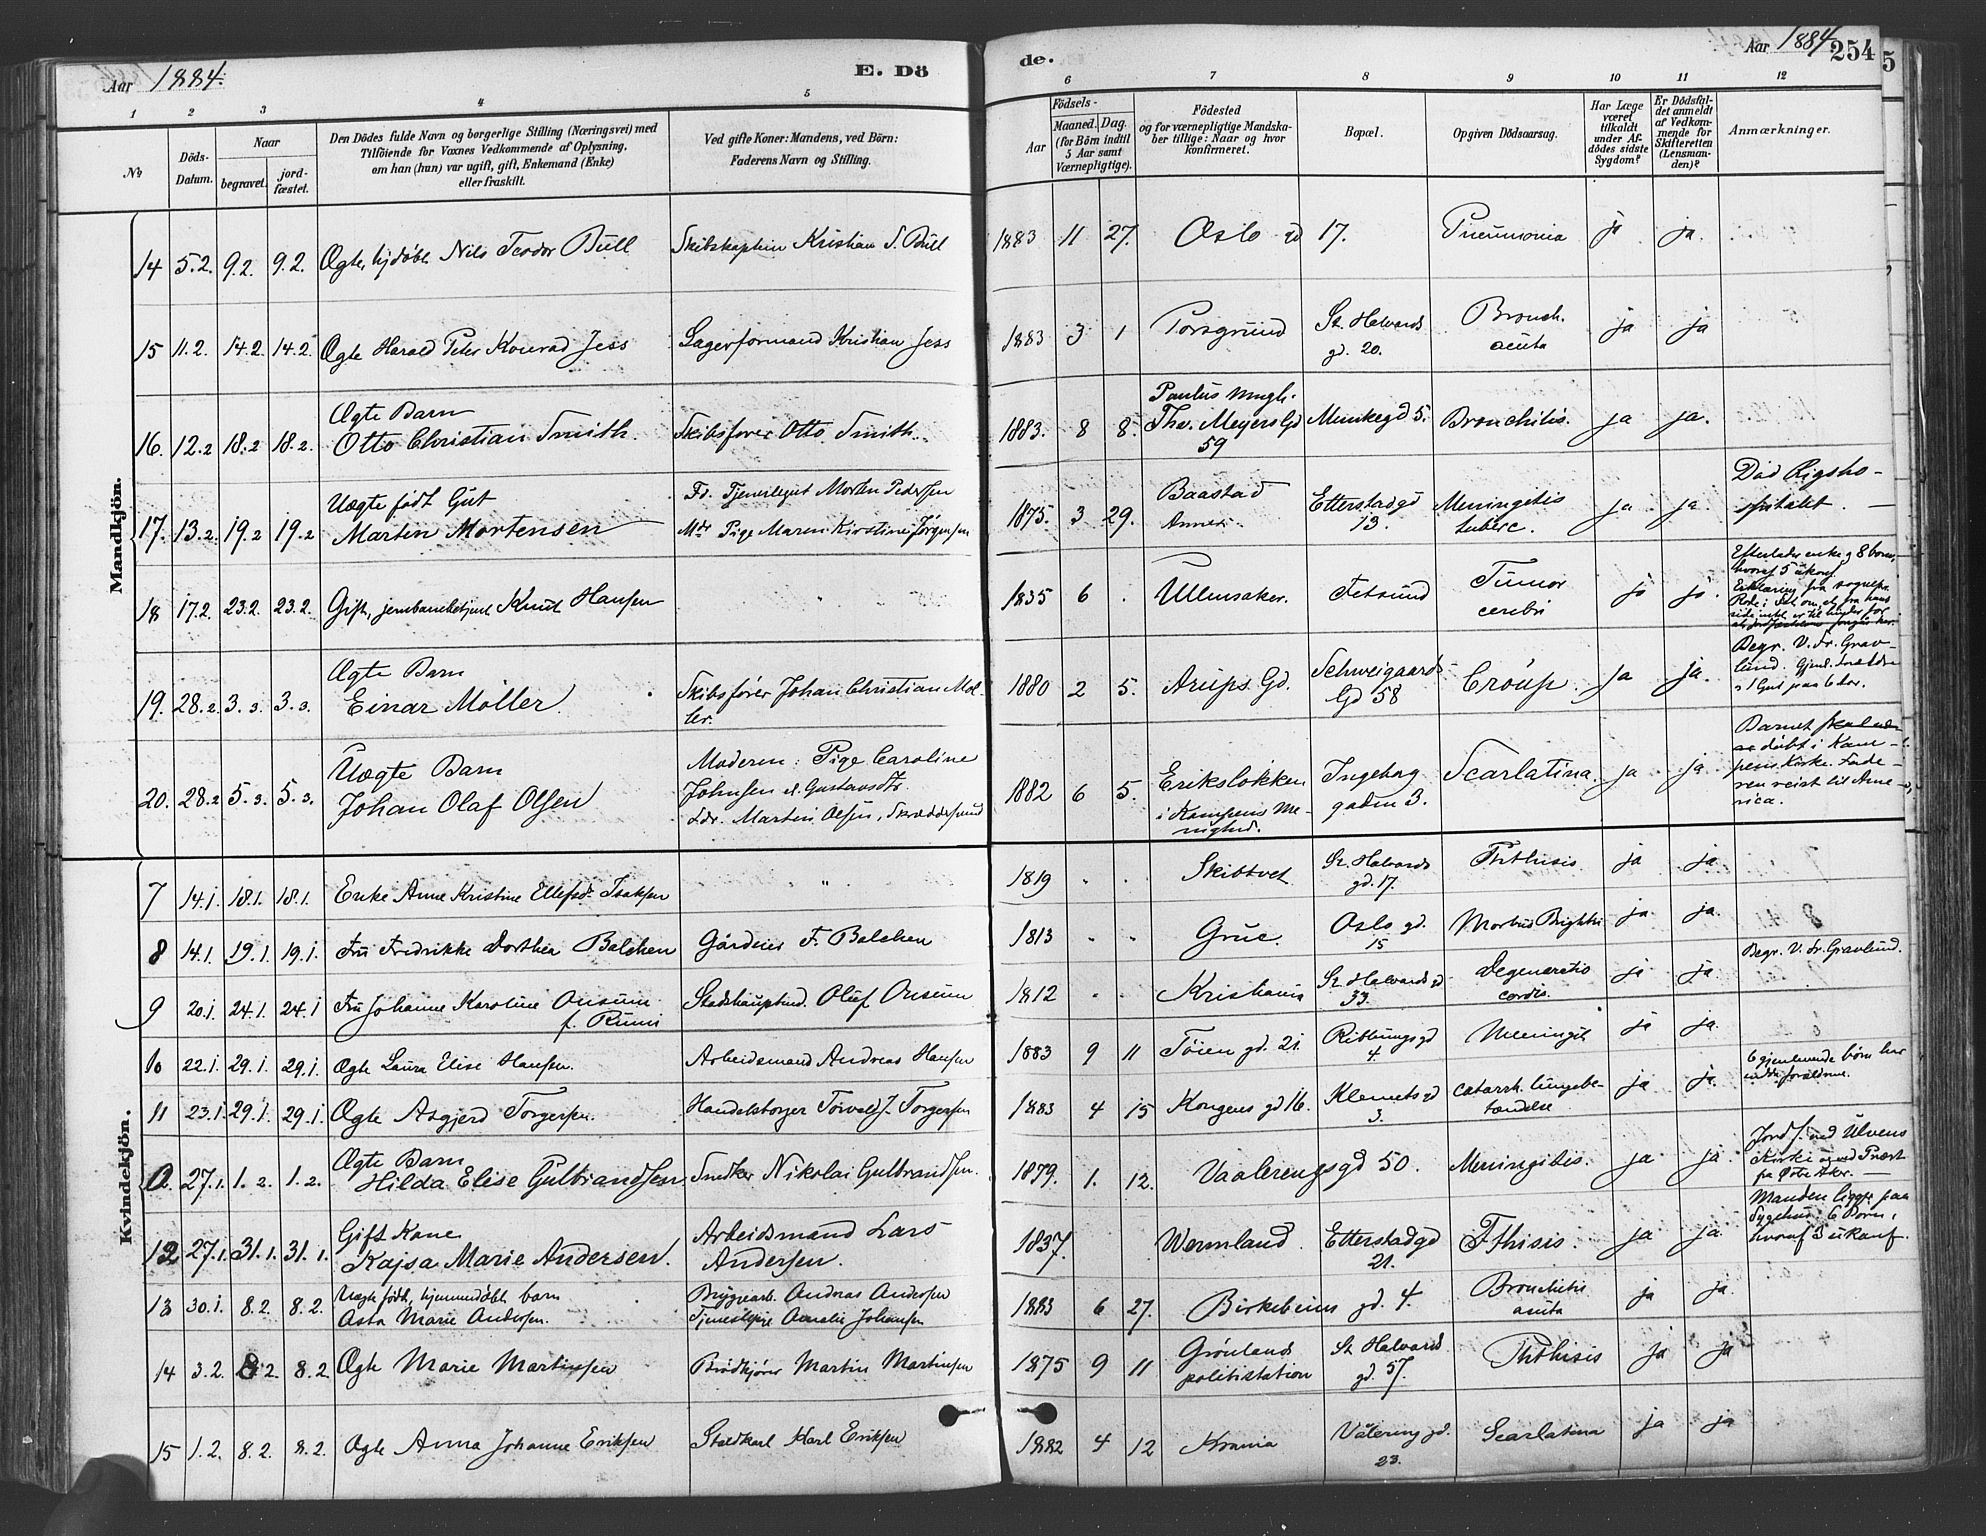 Aar 1884.
E. Dö
de.
Aar 1884
254
5
1 2 3 4 5 6 7 8 9 10 11 12
No
Döds-
Datum.
Naar
begravet.
jord-
fæstet.
Den Dödes fulde Navn og borgerlige Stilling (Næringsvei) med
Tilföiende for Voxnes Vedkommende af Oplysning,
om han (hun) var ugift, gift, Enkemand (Enke)
eller fraskilt.
Ved gifte Koner: Mandens, ved Börn:
Faderens Navn og Stilling.
Födsels-
Aar
Maaned. Dag.
(for Börn indtil
5 Aar samt
Værnepligtige).
Födested
og for værnepligtige Mandska-
ber tillige: Naar og hvor
konfirmeret.
Bopæl.
Opgiven Dödsaarsag.
Har Læge
været
tilkaldt
under Af-
dödes sidste
Sygdom?
Er Dödsfal-
det anmeldt
af Vedkom-
mende for
Skifteretten
(Lensman-
den)?
Anmærkninger.
Mandkjön.
14 5.2. 9.2. 9.2. Ægte, hjdöbt Nils Teodor Bull Skibskaptein Kristian S. Bull 1883 11 27. Oslo gd 17. Pneumonia ja ja.
15 11.2. 14.2 14.2. Ægte Harald Peter Konrad Jess Lagerformand Kristian Jess 1883 3 1 Porsgrund St. Halvards
gd. 20. Bronch.
acuta ja ja
16. 12.2 18.2 18.2. Ægte Barn
Otto Christian Smith. Skibsförer Otto Smith. 1883. 8 8. Paulus Mngh.
Thv. Meyers Gd
59 Munkegd 5. Bronchitis. ja ja.
17. 13.2. 19.2 19.2 Uægte født Gut
Martin Mortensen Fd. Tjenestegut Morten Pedersen
Mdr Pige Maren Kirstine Jörgensen 1875. 3 29. Baastad
Annex. Etterstadgd
13. Meningitis
tuberc. ja. ja. Död Rigsho-
spitalet.
18 17.2 23.2. 23.2. Gift, jernbanebetjent Knut Hansen 1835 6 . Ullensaker. Fetsund Tumor
cerebri ja ja. Efterlader enke og 8 börn,
hvoraf 5 ukonf.
Erklæring fra sognepr.
19. 28.2. 3.3. 3.3. Ægte Barn
Einar Möller. Skibsförer Johan Christian Möl-
ler. 1880 2 5. Arups Gd. Schweigaards-
Gd 58 Croup. ja ja. Begr. V. Fr. Grav-
lund.
20. 28.2 5.3. 5.3. Uægte Barn
Johan Olaf Olsen Moderen: Pige Caroline
Johnsen el. Gustavsdtr.
Fdr. Martin Olsen, Skræddersvend 1882 6 5. Erikslökken
i Kampens Me-
nighed. Ingeborg
gaden 3. Scarlatina. ja ja. Barnet
döbt i Kam-
pens Kirke. Fade-
ren reist til Ame-
rica.
Kvindekjön.
7 14.1. 18.1. 18.1. Enke Anne Kristine Ellefsd. Isaksen " 1819 . . Skibtvet St. Halvards
gd. 17. Phthisis ja ja
8 14.1. 19.1. 19.1. Fru Fredrikke Dorthea Balchen Gårdeier F. Balchen 1813 . . Grue. Oslo gd.
15 Morbus Brightii ja ja.
9 20.1. 24.1. 24.1 Fru Johanne Karoline Onsum
f. Ruus Stadshauptmd. Oluf Onsum 1812 . . Kristiania St. Halvards gd
33. Degeneratio
cordis. ja ja Begr. V. Fr. Gravlund.
10 22.1. 29.1. 29.1. Ægte Laura Elise Hansen. Arbeidsmand Andreas Hansen 1883 9 11 Töien gd. 21. Ribbungs gd
4 Meningit ja ja. 6 gjenlevende börn har
11 23.1 29.1. 29.1. Ægte Asgjerd Torgersen. Handelsborger Torvald J. Torgersen 1883 4 15 Kongens gd 16. Klemets gd
3. Catarrh. lungebe-
tændelse ja ja.
27.1. 1.2. 1.2. Ægte Barn
Hilda Elise Gulbrandsen Snedker Nikolai Gulbrandsen. 1879. 1. 12. Vaalerengsgd 50. Meningitis. ja ja Jordf. ved Ulvens
Kirke og ved Præst
fra Östre Aker.
12 27.1. 31.1. 31.1. Gift Kone
Kajsa Marie Andersen. Arbeidsmand Lars
Andersen. 1837. Wermland. Etterstadgd
21. Fthisis. ja ja Manden ligger paa
Sygehus. 6 Börn,
hvoraf 3 ukonf.
13 30.1. 8.2. 8.2. Uægte födt, hjemmedöbt barn
Asta Marie Andersen. Bryggearb. Andreas Andersen
Tjenestepige Amalie Johansen 1883 6 27. Birkebeins gd. 4. Bronchitis
acuta ja ja.
14 3.2. 8.2. 8.2 Ægte Marie Martinsen Brödkjörer Martin Martinsen 1875 9 11 Grönlands
politistation St Halvards
gd. 57. Phthisis ja ja
15 1.2. 8.2. 8.2. Ægte Anna Johanne Eriksen Staldkarl Karl Eriksen 1882 4 12 Krania Våleren gd.
23. Scarlatina ja ja